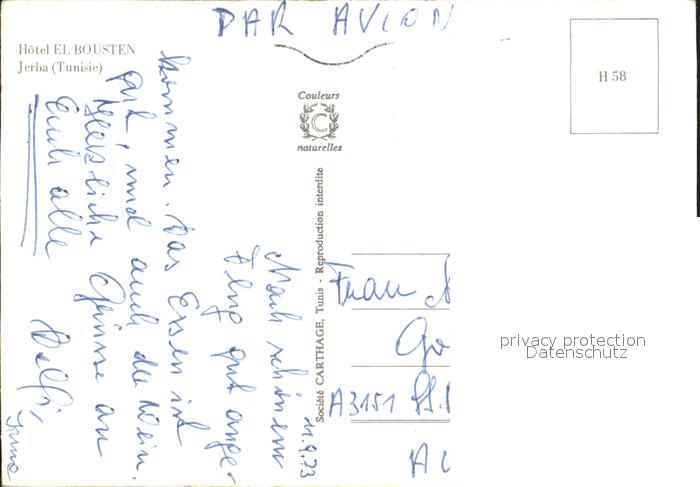 PAR AVION
Hôtel EL BOUSTEN
Jerba (Tunisie)
H 58
Couleurs
C
naturelles
Société CARTHAGE, Tunis - Reproduction interdite
11.9.73
Nach schönem
Flug gut ange-
kommen. Das Essen ist
gut, und auch der Wein.
Herzliche Grüsse an
Euch alle
Frau
A3151
privacy protection
Datenschutz